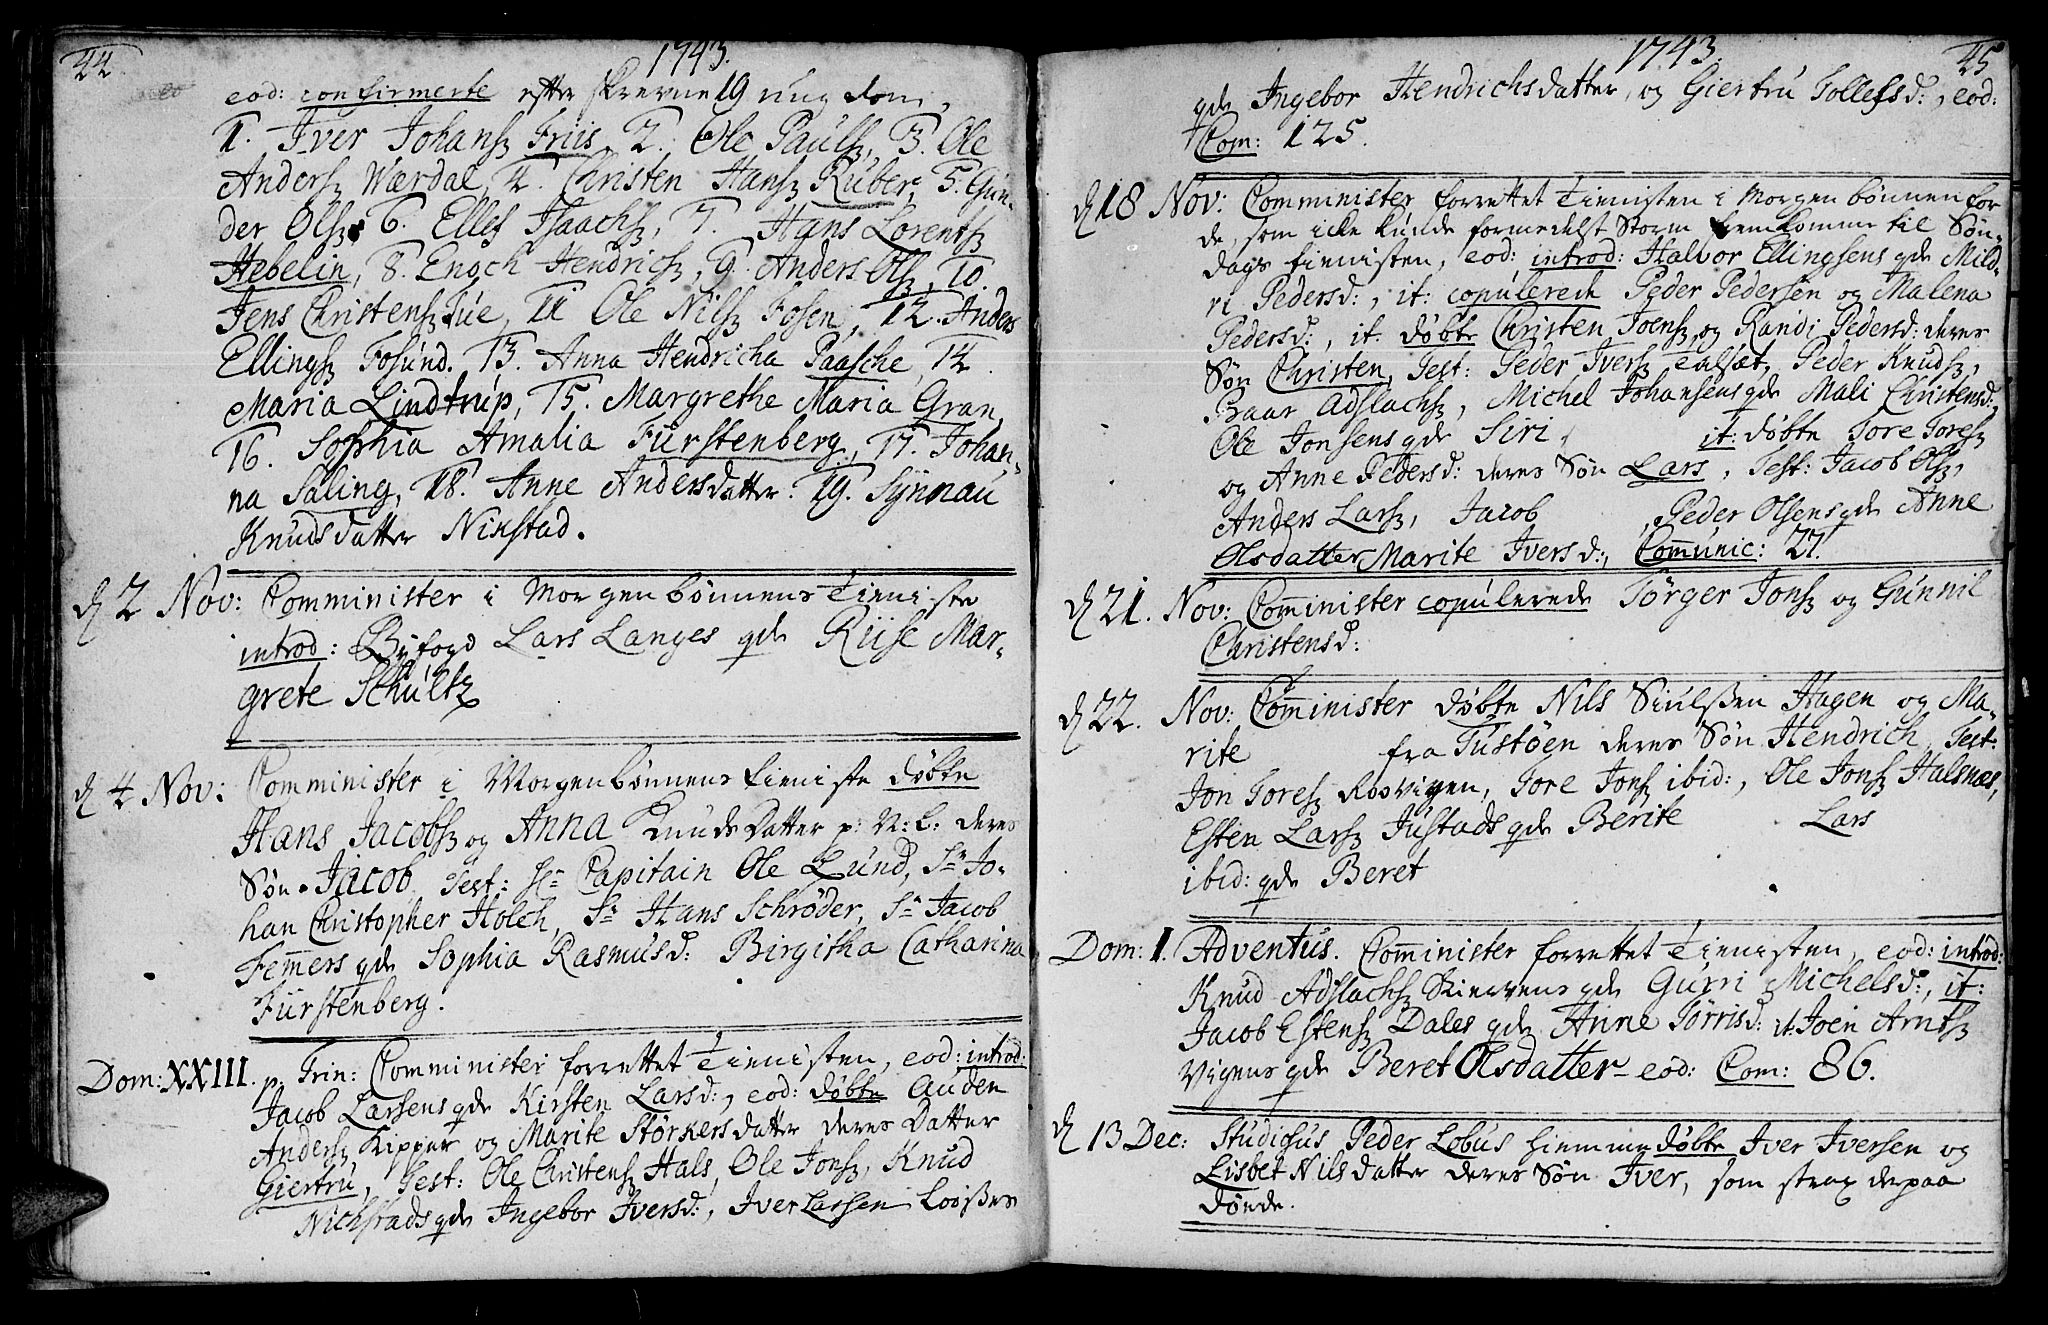 44.
1743.
eod: confirmerte efter skrevne 19 ungdom,
1. Iver Johansz Friis, 2. Ole Paulsz, 3. Ole
Andersz Wærdal, 4. Christen Hansz Kuber, 5. Gun-
der Olsz 6. Ellef Isaachsz, 7. Hans Lorentsz
Hebelin, 8. Enoch Hendrichsz, 9. Anders Olsz, 10.
Jens Christensz Tue, 11 Ole Nilsz Fosen, 12. Anders
Ellingsz Fosund. 13. Anna Hendricha Paasche, 14.
Maria Lindtrup, 15. Margrethe Maria Gran,
16. Sophia Amalia Fürstenberg, 17. Johan-
na Saling, 18. Anne Andersdatter. 19. Synnau
Knudsdatter Nixstad.
d 2 Nov: Comminister i Morgenbønnens Tieniste
introd: Byfogd Lars Langes qde Riise Mar-
grete Schultz
d 4 Nov: Comminister i Morgenbønnens tieniste døbte
Hans Jacobsz og Anna Knudsdatter p: N: l: deres
Søn Jacob Test: Hr Capitain Ole Lund, Sr Jo-
han Christopher Holck, Sr Hans Schrøder, Sr Jacob
Femers qde Sophia Rasmusd: Birgitha Catharina
Fürstenberg.
Dom: XXIII. p. Trin: Comminister forrettet Tienisten, eod: introd:
Jacob Larsens qde Kirsten Larsd:, eod: døbte Auden
Andersz Kipper og Marite Størkersdatter deres Datter
Giertru, Test: Ole Christensz Hals, Ole Jonsz, Knud
Nichstads qde Ingebor Iversd:, Iver Larsen
1743.
45
qde Ingebor Hendrichsdatter, og Giertru Tollefsd:, eod:
Com: 125.
d 18 Nov: Comminister forrettet Tienisten i Morgenbønnen for
de, som icke kunde formedelst Storm fremkomme til Søn-
dags tienisten, eod: introd: Halvor Ellingsens qde Mild-
ri Pedersd:, it: copulerede Peder Pedersen og Malena
Pedersd:, it: døbte Christen Joensz og Randi Pedersd: deres
Søn Christen, Test: Peder Iversz Talsæt, Peder Knudsz,
Baar Adslachsz, Michel Johansens qde Mali Christensd:,
Ole Jonsens qde Siri, it: døbte Tore Toresz
og Anne Pedersd: deres Søn Lars, Test: Jacob Olsz,
Anders Larsz, Jacob , Peder Olsens qde Anne
Olsdatter Marite Iversd:, Communic: 27.
d 21. Nov: Comminister copulerede Tørger Jonsz og Gunnil
Christensd:
d 22. Nov: Comminister døbte Nils Siulssen Hagen og Ma-
rite fra Tustøen deres Søn Hendrich, Test:
Jon Toresz Rosvigen, Tore Jonsz ibid:, Ole Jonsz Halsnæs,
Esten Larsz Justads qde Berite Lars
ibid: qde Beret
Dom: I. Adventus. Comminister forrettet Tienisten, eod: introd:
Knud Adslachsz Skiervens qde Gurri Michelsd:, it:
Jacob Estensz Dales qde Anne Torrisd: it: Joen Arntsz
Vigens qde Beret Olsdatter - eod: Com: 86.
d 13 Dec: Studiosus Peder Lobus hiemme døbte Iver Iversen og
Lisbet Nilsdatter deres Søn Iver, som strax derpaa
døde.